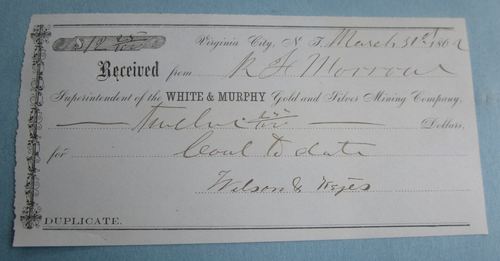 $12 25/100 Virginia City, N. T. March 31st 1862
Received from R H Morrow
Superintendent of the WHITE & MURPHY Gold and Silver Mining Company.
Twelve 25/100 Dollars,
for Coal to date
Wilson & Keyes
DUPLICATE.